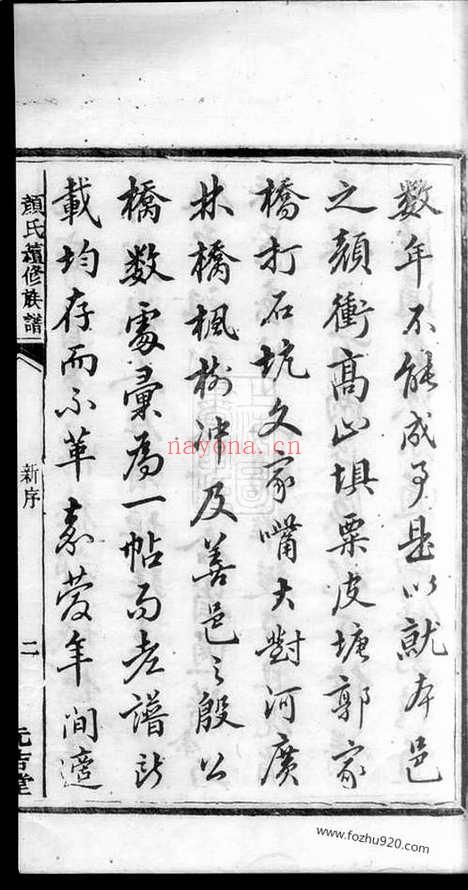 数年不能成事是以就本邑
之顏衝髙山埧栗皮塘郭家
橋打石坑文家嘴大對河廣
林橋楓樹冲及善邑之殷公
橋数處彙為一帖而老譜所
載均存而不革嘉慶年間適
顏氏續修族譜
新序
二
元吉堂
nayona.cn
www.fozhu920.com